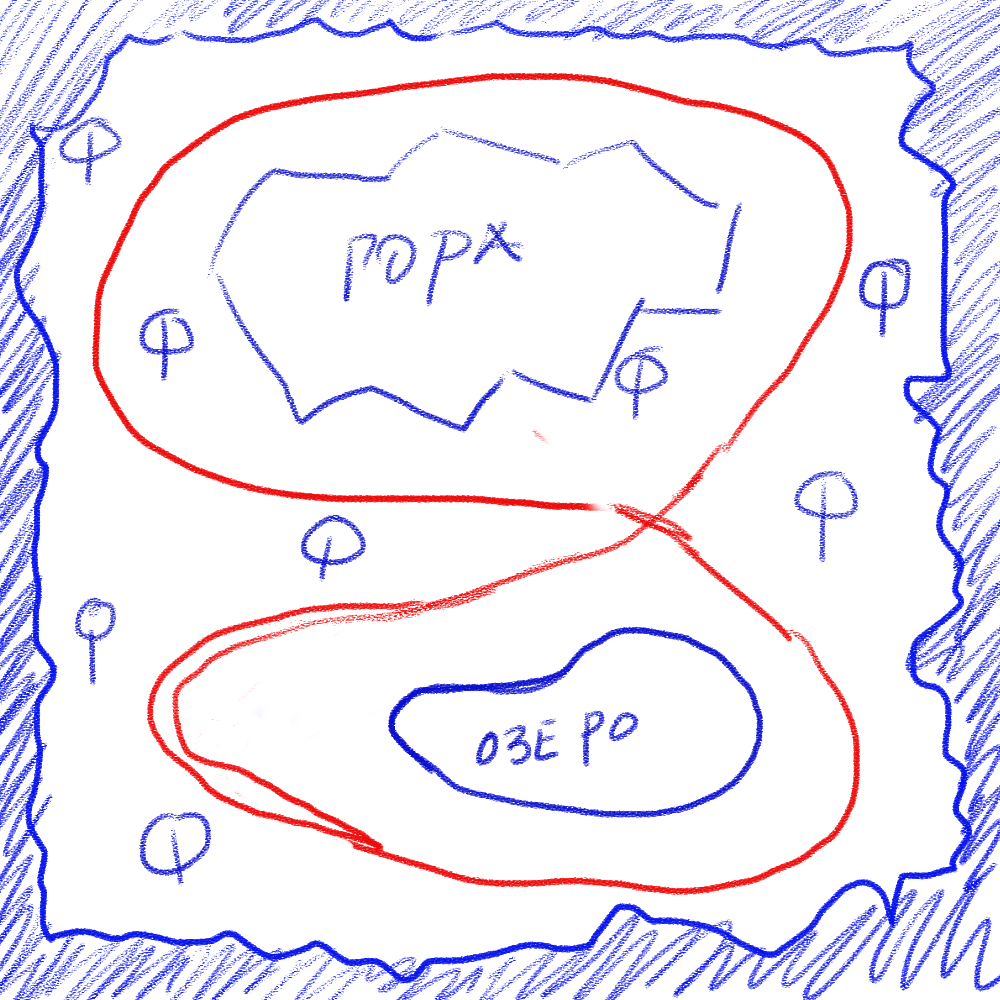 ГОРА
ОЗЕРО